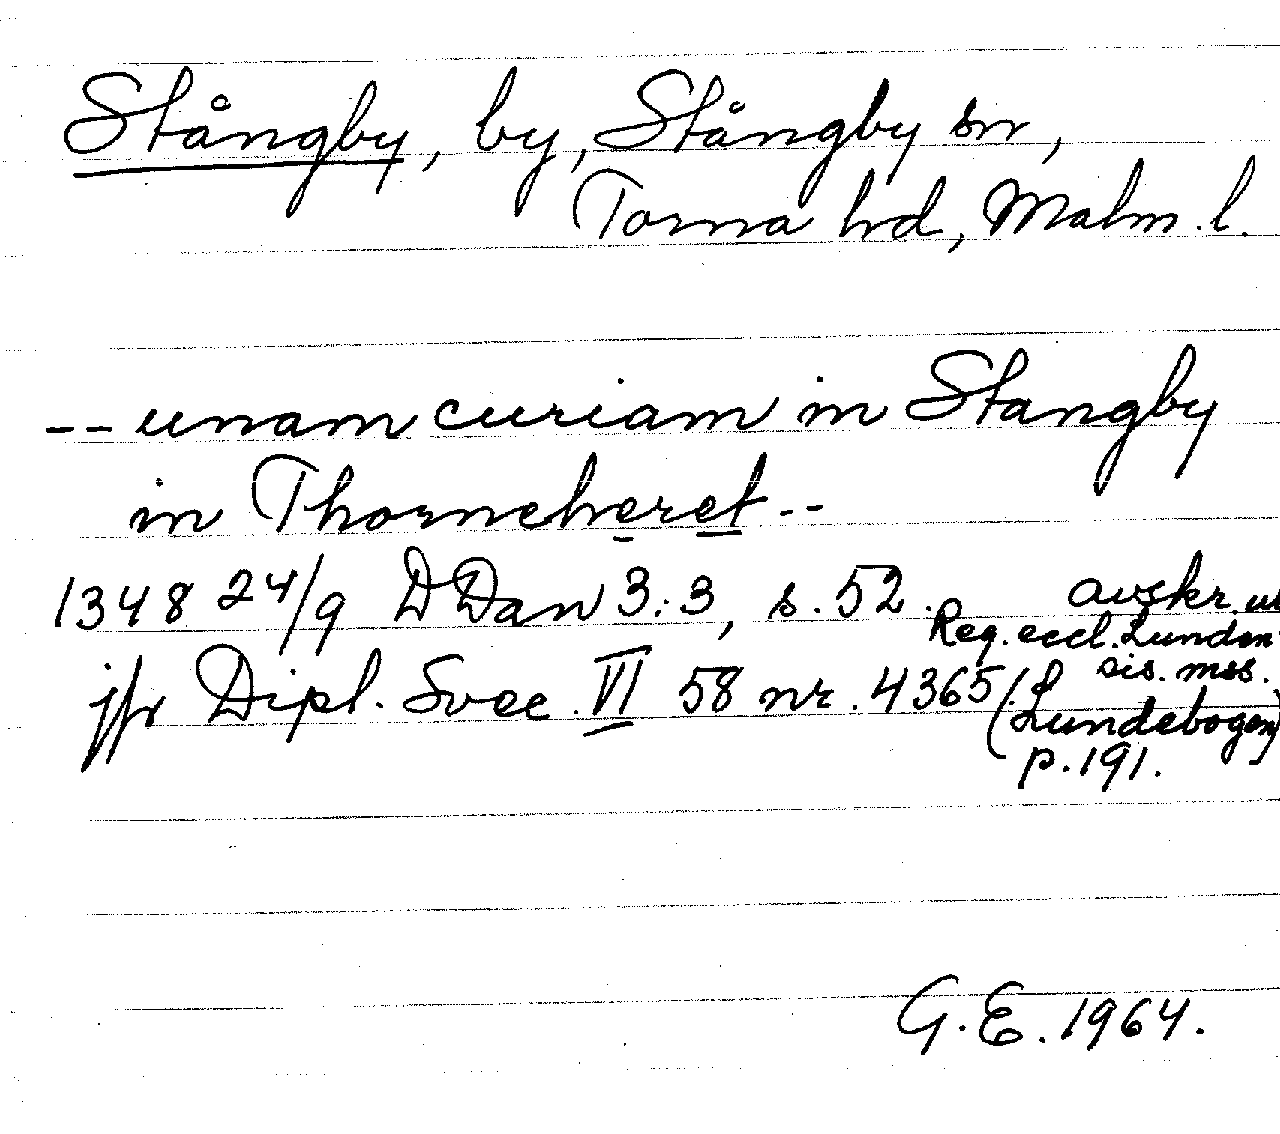 Stångby, by, Stångby sn,
Torna hd, Malm. l.
-- unam curiam in Stangby
in Thorneheret --
1348 24/9 DDan 3:3, s. 52. avskr. ur
Reg. eccl. Lunden
jfr Dipl. Svec. VI 58 nr. 4365 sis. mss.
(L Lundebogen)
p. 191.
G. E. 1964.